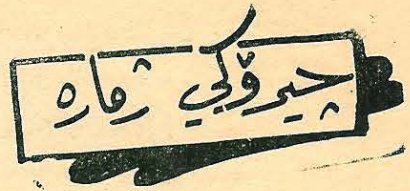 چیرۆکي ژماره